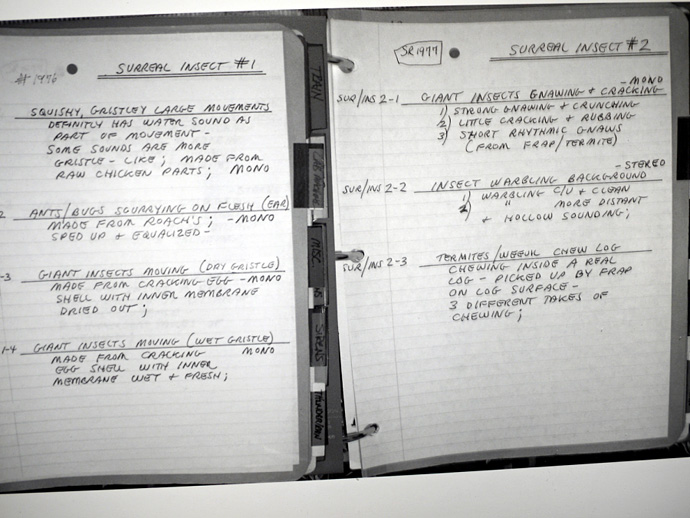 # 1976
SURREAL INSECT #1
SQUISHY, GRISTLEY LARGE MOVEMENTS
DEFINITLY HAS WATER SOUND AS
PART OF MOVEMENT -
SOME SOUNDS ARE MORE
GRISTLE - LIKE; MADE FROM
RAW CHICKEN PARTS; MONO
2 ANTS/BUGS SQURRYING ON FLESH (EAR)
MADE FROM ROACH'S; - MONO
SPED UP & EQUALIZED -
-3 GIANT INSECTS MOVING (DRY GRISTLE)
MADE FROM CRACKING EGG - MONO
SHELL WITH INNER MEMBRANE
DRIED OUT;
1-4 GIANT INSECTS MOVING (WET GRISTLE)
MADE FROM CRACKING MONO
EGG SHELL WITH INNER
MEMBRANE WET & FRESH;
TRAIN
MISC
THUNDER/RAIN
SR 1977
SURREAL INSECT #2
- MONO
SUR/INS 2-1 GIANT INSECTS GNAWING & CRACKING
1) STRONG GNAWING & CRUNCHING
2) LITTLE CRACKING & RUBBING
3) SHORT RHYTHMIC GNAWS
(FROM FRAP/TERMITE)
- STEREO
SUR/INS 2-2 INSECT WARBLING BACKGROUND
1) WARBLING C/U & CLEAN
2) " MORE DISTANT
& HOLLOW SOUNDING;
SUR/INS 2-3 TERMITES/WEEVIL CHEW LOG
CHEWING INSIDE A REAL
LOG - PICKED UP BY FRAP
ON LOG SURFACE -
3 DIFFERENT TAKES OF
CHEWING;